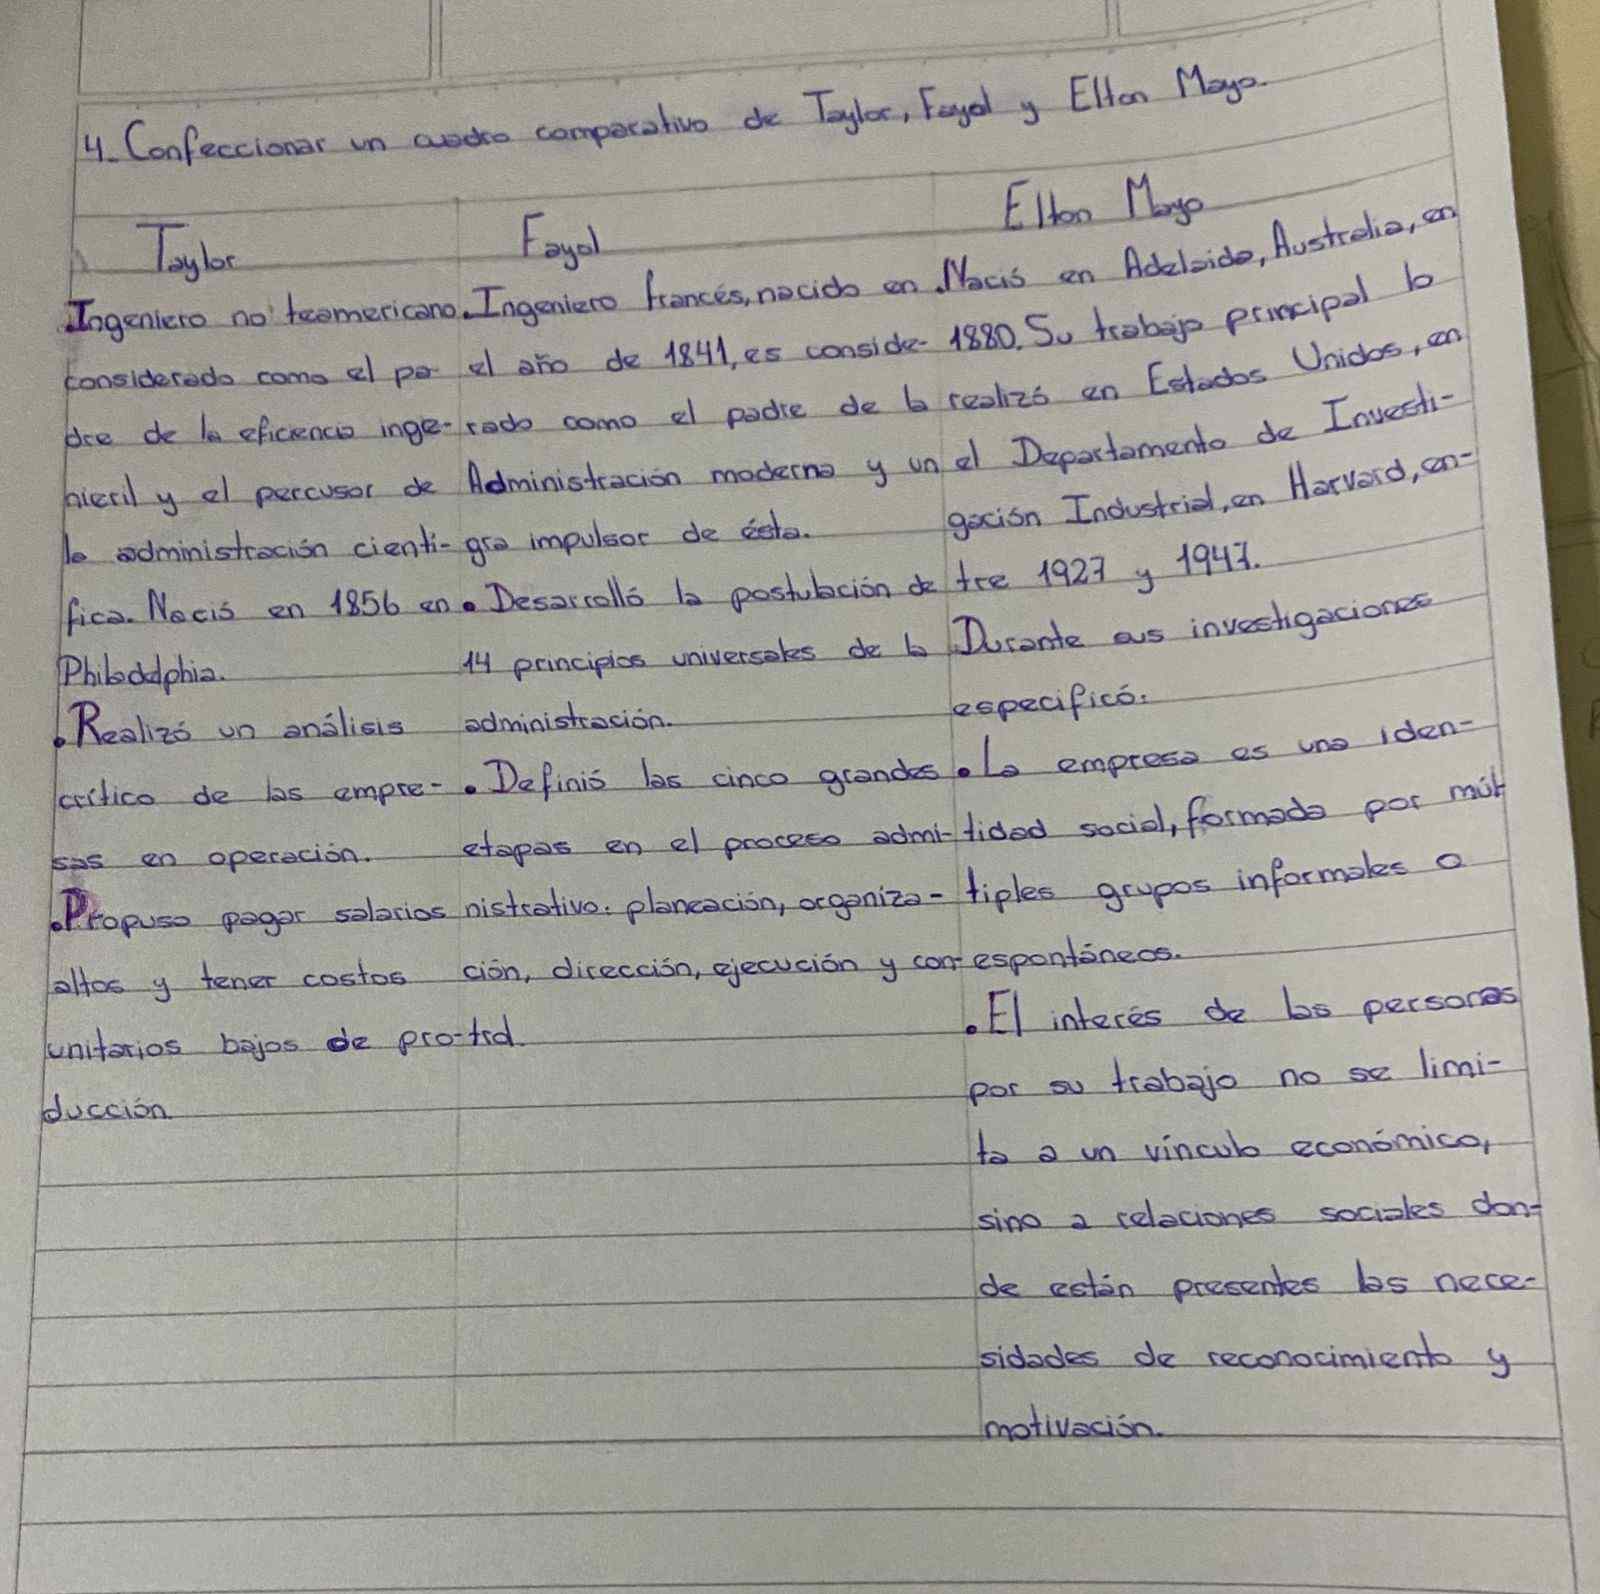 4. Confeccionar un cuadro comparativo de Taylor, Fayol y Elton Mayo.
Taylor
.Ingeniero no teamericano
considerado como el pa-
dre de la eficiencia inge-
nieril y el percusor de
la administración cientí-
fica. Nació en 1856 en
Philadelphia.
.Realizó un análisis
crítico de las empre-
sas en operación.
.Propuso pagar salarios
altos y tener costos
unitarios bajos de pro-
ducción.
Fayol
.Ingeniero francés, nacido en
el año de 1841, es conside-
rado como el padre de la
Administración moderna y un
gra impulsor de ésta.
.Desarrolló la postulación de
14 principios universales de la
administración.
.Definió las cinco grandes
etapas en el proceso admi-
nistrativo: planeación, organiza-
ción, dirección, ejecución y con-
trol.
Elton Mayo
.Nació en Adelaida, Australia, en
1880. Su trabajo principal lo
realizó en Estados Unidos, en
el Departamento de Investi-
gación Industrial, en Harvard, en-
tre 1927 y 1947.
Durante sus investigaciones
especificó:
.La empresa es una iden-
tidad social, formada por múl-
tiples grupos informales o
espontáneos.
.El interés de las personas
por su trabajo no se limi-
ta a un vínculo económico,
sino a relaciones sociales don-
de están presentes las nece-
sidades de reconocimiento y
motivación.